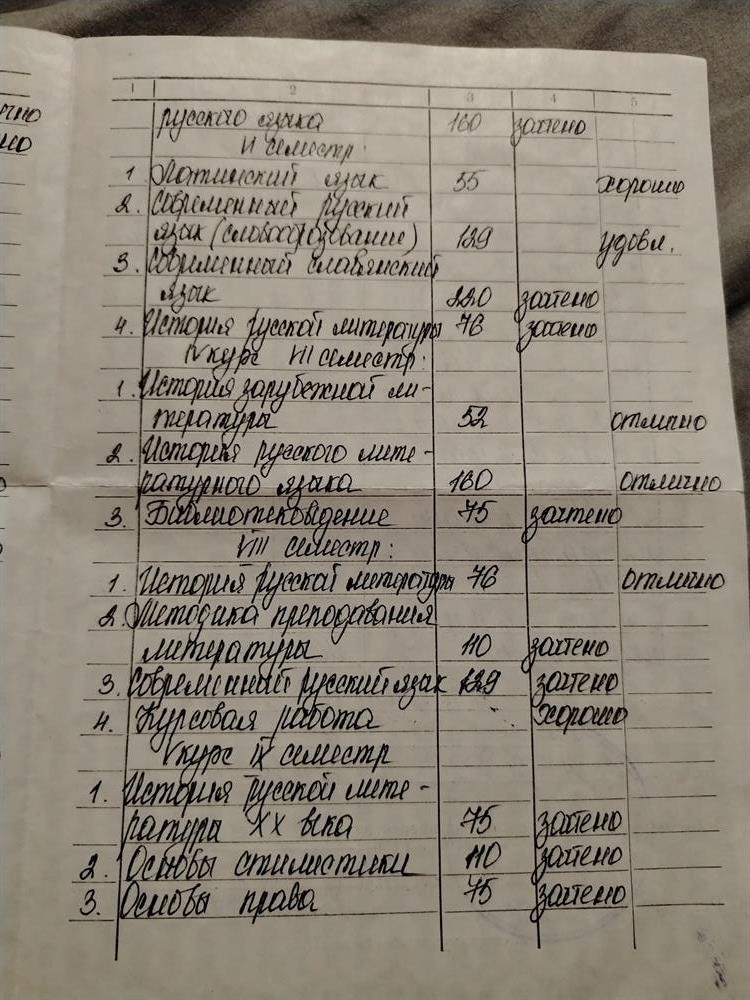 1 2 3 4 5
русского языка 160 зачтено
VI семестр:
1. Латинский язык 55 хорошо
2. Современный русский
язык (словообразование) 129 удовл.
3. Современный славянский
язык 220 зачтено
4. История русской литературы 76 зачтено
IV курс VII семестр:
1. История зарубежной ли-
тературы 52 отлично
2. История русского лите-
ратурного языка 160 отлично
3. Библиотековедение 75 зачтено
VIII семестр:
1. История русской литературы 76 отлично
2. Методика преподавания
литературы 110 зачтено
3. Современный русский язык 129 зачтено
4. Курсовая работа хорошо
V курс IX семестр
1. История русской лите-
ратура XX века 75 зачтено
2. Основы стилистики 110 зачтено
3. Основы права 75 зачтено